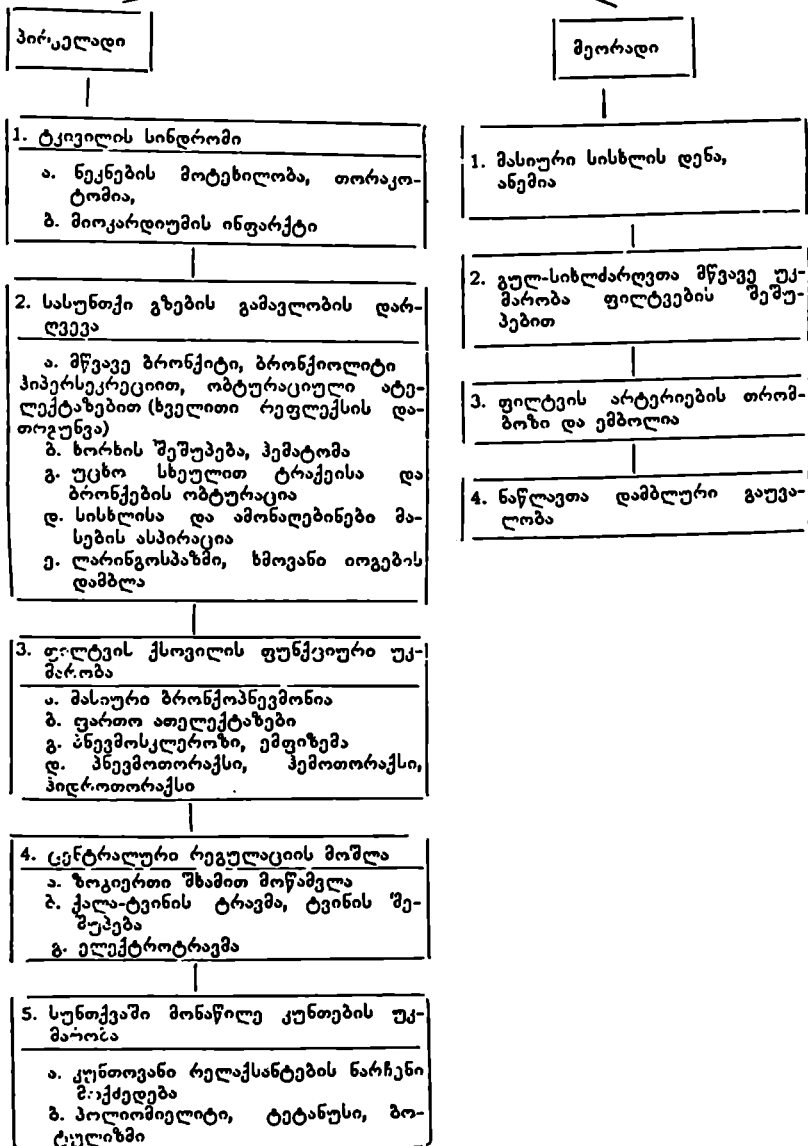 პირველადი
მეორადი
1. ტკივილის სინდრომი
ა. ნეკნების მოტეხილობა, თორაკო-
ტომია,
ბ. მიოკარდიუმის ინფარქტი
2. სასუნთქი გზების გამავლობის დარ-
ღვევა
ა. მწვავე ბრონქიტი, ბრონქიოლიტი
ჰიპერსეკრეციით, ობტურაციული ატე-
ლექტაზებით (ხველითი რეფლექსის და-
თრგუნვა)
ბ. ხორხის შეშუპება, ჰემატომა
გ. უცხო სხეულით ტრაქეისა და
ბრონქების ობტურაცია
დ. სისხლისა და ამონაღებინები მა-
სების ასპირაცია
ე. ლარინგოსპაზმი, ხმოვანი იოგების
დამბლა
3. ფილტვის ქსოვილის ფუნქციური უკ-
მარობა
ა. მასიური ბრონქოპნევმონია
ბ. ფართო ათელექტაზები
გ. პნევმოსკლეროზი, ემფიზემა
დ. პნევმოთორაქსი, ჰემოთორაქსი,
ჰიდროთორაქსი
4. ცენტრალური რეგულაციის მოშლა
ა. ზოგიერთი შხამით მოწამვლა
ბ. ქალა-ტვინის ტრავმა, ტვინის შე-
შუპება
გ. ელექტროტრავმა
5. სუნთქვაში მონაწილე კუნთების უკ-
მარობა
ა. კუნთოვანი რელაქსანტების ნარჩენი
მოქმედება
ბ. პოლიომიელიტი, ტეტანუსი, ბო-
ტულიზმი
1. მასიური სისხლის დენა,
ანემია
2. გულ-სისხლძარღვთა მწვავე უკ-
მარობა ფილტვების შეშუ-
პებით
3. ფილტვის არტერიების თრომ-
ბოზი და ემბოლია
4. ნაწლავთა დამბლური გაუვა-
ლობა